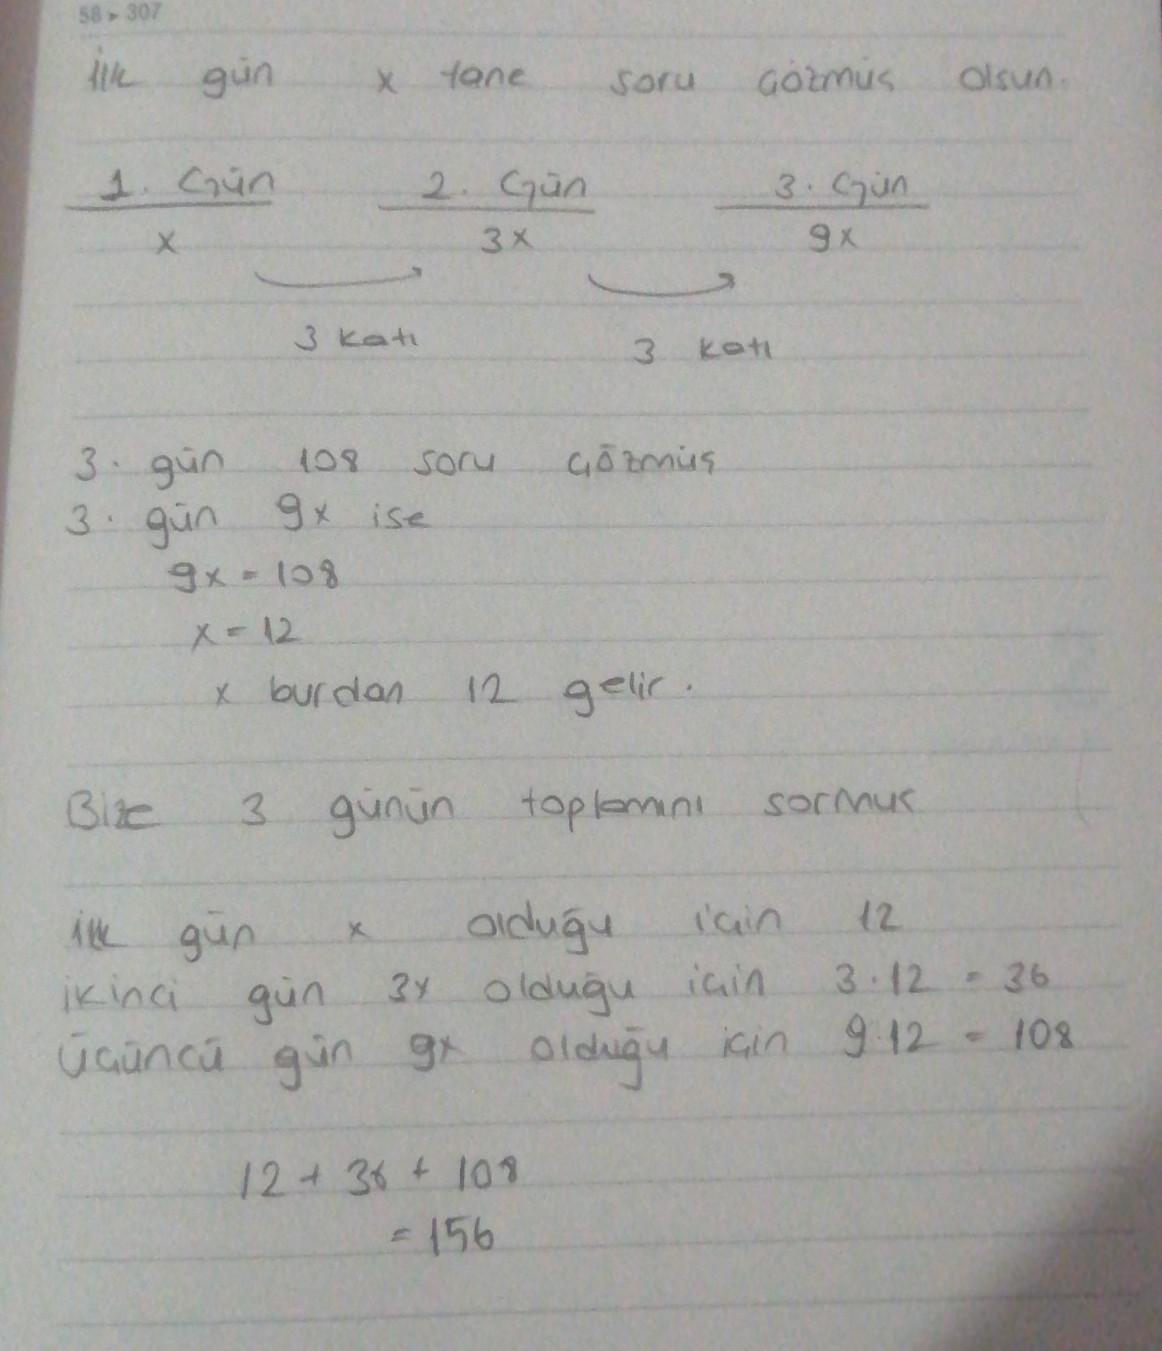 58 ▸ 307
İlk gün x tane soru çözmüş olsun.
1. Gün 2. Gün 3. Gün
x 3x 9x
3 katı 3 katı
3. gün 108 soru çözmüş
3. gün 9x ise
9x = 108
x = 12
x burdan 12 gelir.
Bize 3 günün toplamını sormuş
ilk gün x olduğu için 12
ikinci gün 3x olduğu için 3.12 = 36
Üçüncü gün 9x olduğu için 9.12 = 108
12 + 36 + 108
= 156